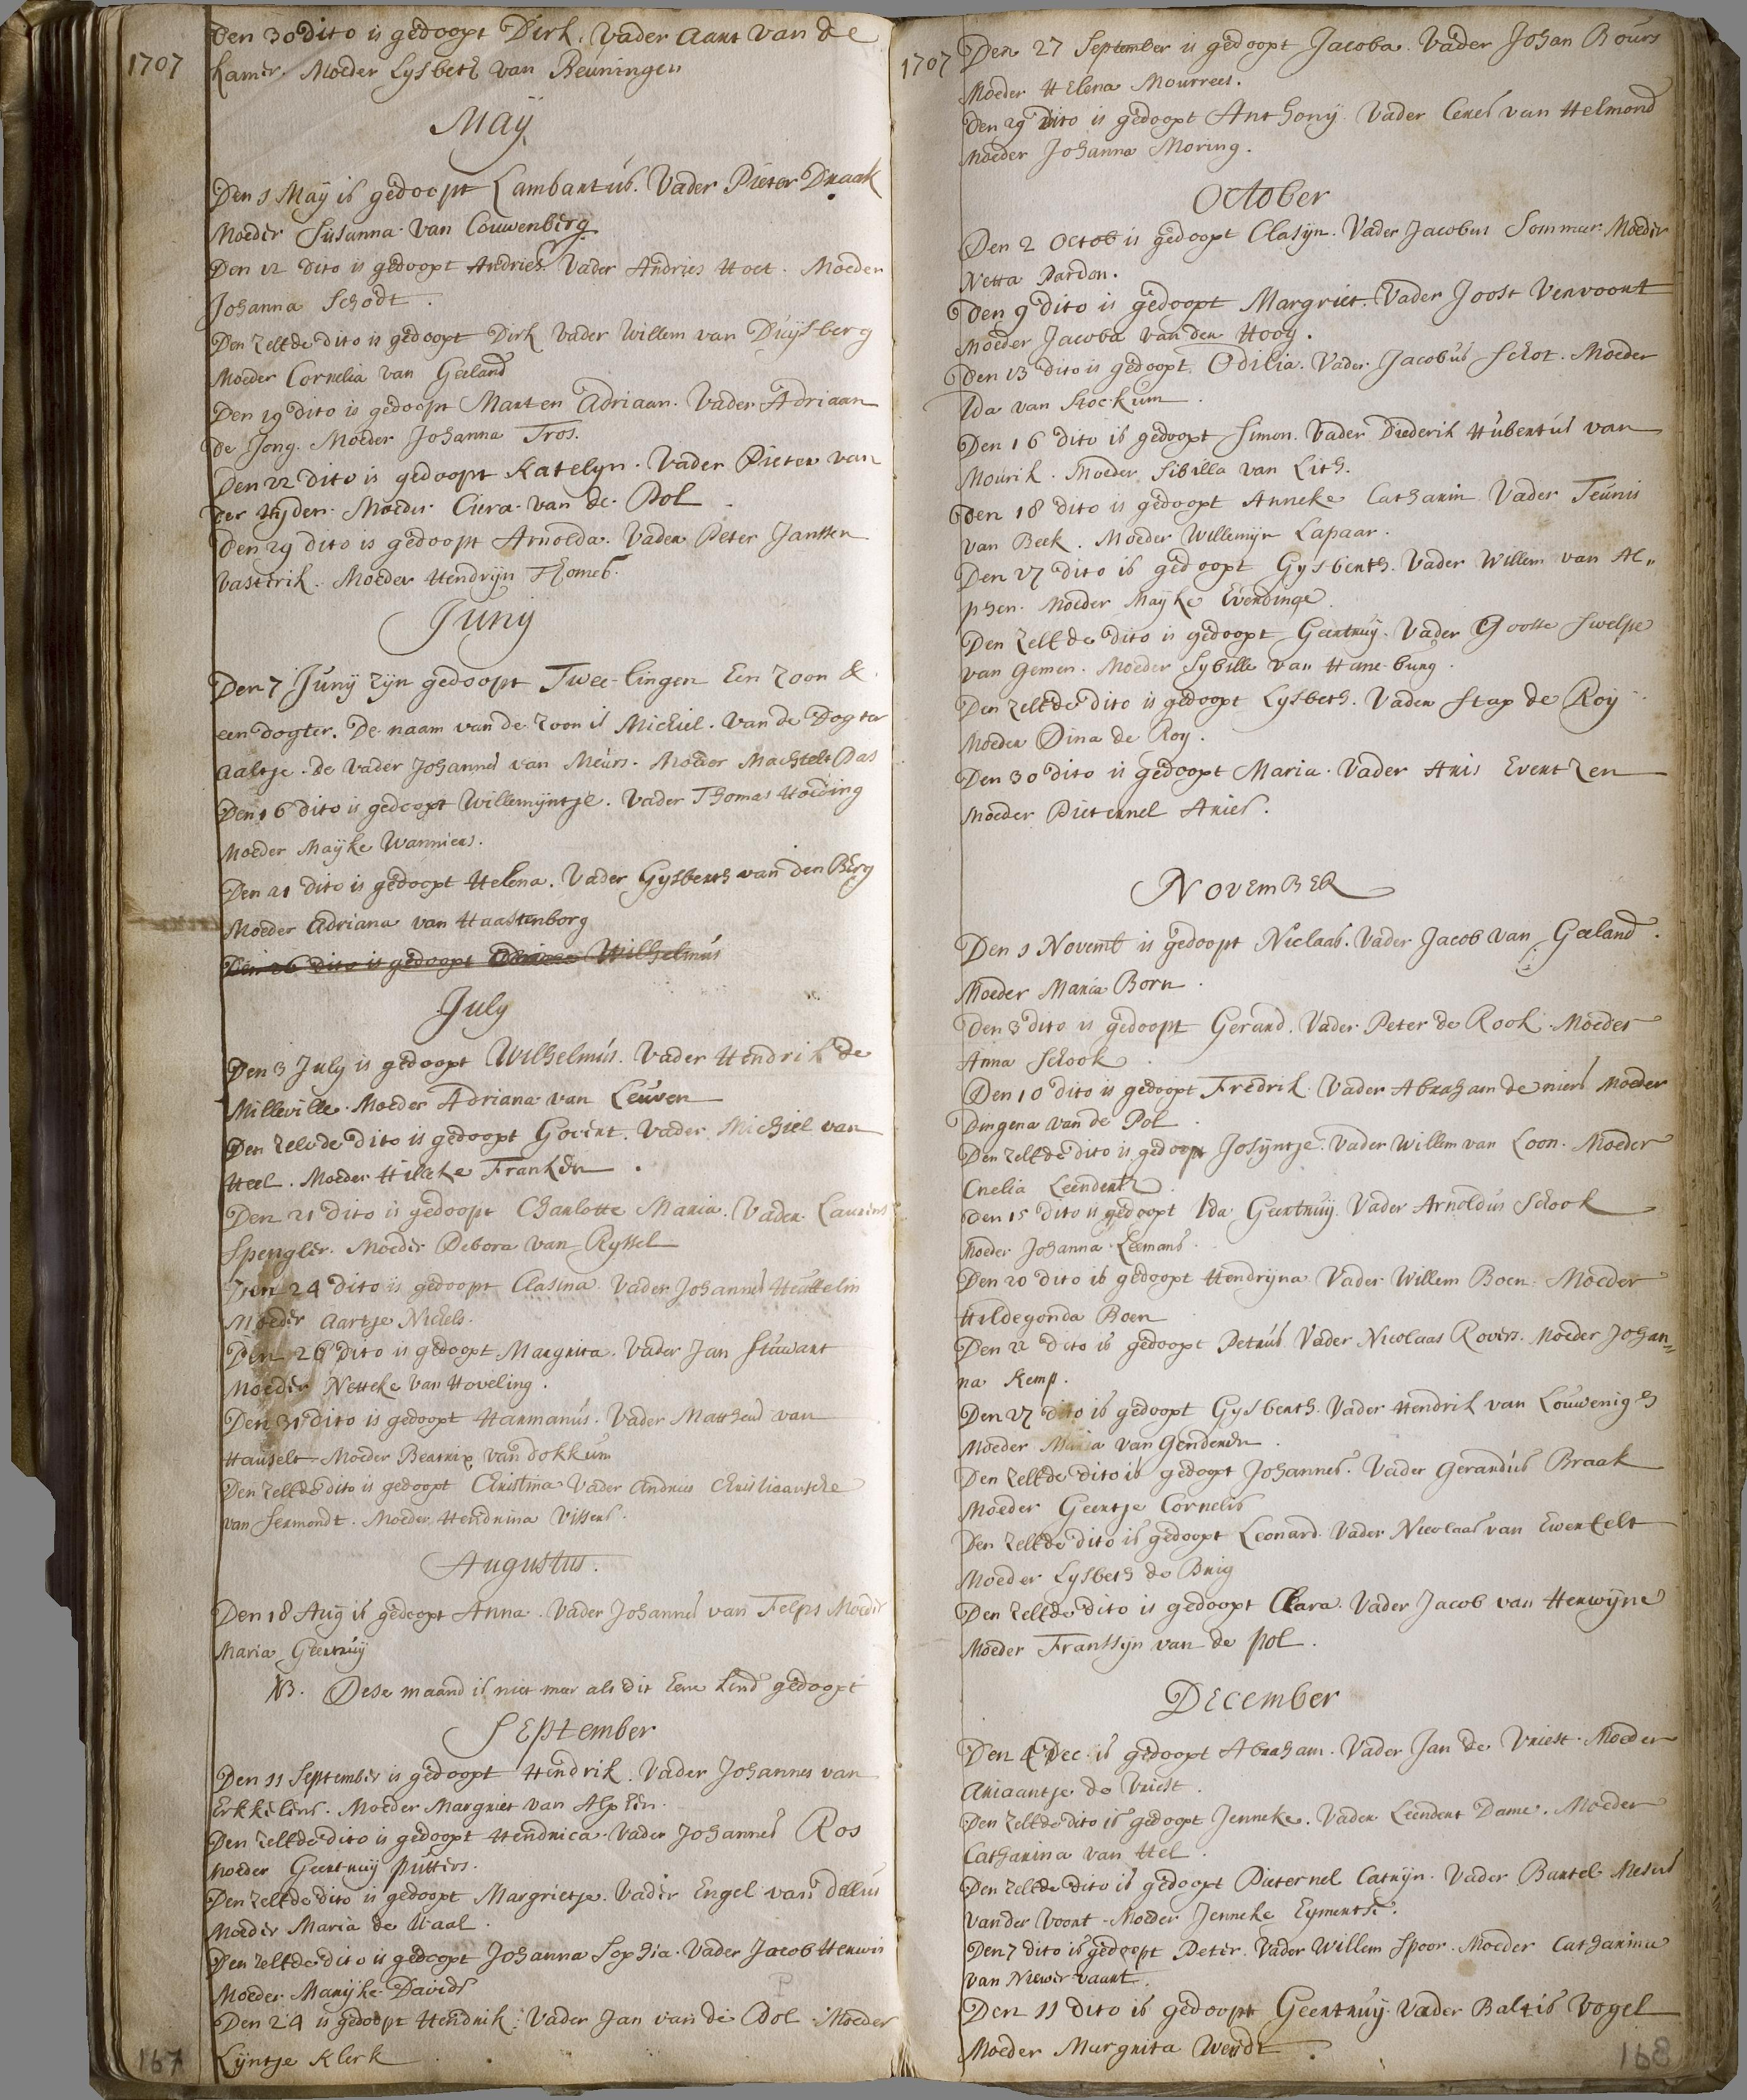 1707
Den 30 dito is gedoopt Dirk. Vader Aart van de
Kamer. Moeder Lysbeth van Beuningen
Maÿ
Den 1 Maÿ is gedoopt Lambartus. Vader Pieter Draak
Moeder Susanna van Couwenberg
Den 12 dito is gedoopt Andries. Vader Andries Hoet. Moeder
Johanna Schodt.
Den zelfde dito is gedoopt Dirk Vader Willem van Duÿsberg
Moeder Cornelia van Geeland
Den 19 dito is gedoopt Marten Adriaan. Vader Adriaan
de Jong. Moeder Johanna Tros.
Den 22 dito is gedoopt Katelyn. Vader Pieter van
der Heÿden. Moeder Ciera van de Pol
Den 29 dito is gedoopt Arnolda. Vader Peter Janssen
Vasterik. Moeder Hendrijn Thomes.
Junÿ
Den 7 Junÿ zijn gedoopt Twee-lingen Een zoon &
een dogter. De naam van de zoon is Michiel. van de Dogter
Aaltje. de Vader Johannes van Meurs. Moeder Machtelt Das
Den 16 dito is gedoopt Willemijntje. Vader Thomas Hoeding
Moeder Maÿke Wanniers.
Den 21 dito is gedoopt Helena. Vader Gÿsberth van den Berg
Moeder Adriana van Haastenborg
Den 26 dito is gedoopt Wilhelmus
July
Den 3 July is gedoopt Wilhelmus. Vader Hendrik de
Milleville. Moeder Adriana van Leuven
Den zelvde dito is gedoopt Govert. Vader Michiel van
Heel. Moeder Hilleke Franken.
Den 21 dito is gedoopt Charlotte Maria. Vader Laurens
Spengler. Moeder Debora van Ryssel
Den 24 dito is gedoopt Clasina. Vader Johannes
Moeder Aartje Nickels.
Den 26 dito is gedoopt Margrita. Vader Jan Stuwart
Moeder Netteke van Hoveling.
Den 31 dito is gedoopt Harmanus. Vader Mattheus van
Hauselt Moeder Beatrix van dokkum
Den zelfde dito is gedoopt Christina Vader Andries Christiaansche
van Sermondt. Moeder Hendrina Vissers.
Augustus.
Den 18 Aug is gedoopt Anna. Vader Johannes van Felps Moeder
Maria Geertruÿ
NB. Dese maand is niet meer als dit Eene kind gedoopt
September
Den 11 September is gedoopt Hendrik. Vader Johannes van
Erkkelens. Moeder Margriet van Alphen.
Den zelfde dito is gedoopt Hendrica. Vader Johannes Ros
moeder Geertruÿ Putters.
Den zelfde dito is gedoopt Margrietje. Vader Engel van
Moeder Maria de Waal.
Den zelfde dito is gedoopt Johanna Sophia. Vader Jacob Herwis
Moeder Marijke Davids
Den 24 is gedoopt Hendrik: Vader Jan van de Pol Moeder
Lyntje Klerk
167
1707
Den 27 September is gedoopt Jacoba. Vader Johan Bours
Moeder Helena Mourrees.
Den 29 dito is gedoopt Anthonÿ. Vader Ceres van Helmond
Moeder Johanna Moring.
October
Den 2 Octob is gedoopt Clasijn. Vader Jacobus Sommer. Moeder
Netta Pardon.
Den 9 dito is gedoopt Margriet. Vader Joost Vervoort
Moeder Jacoba van den Hoog.
Den 13 dito is gedoopt Odilia. Vader Jacobus Schot. Moeder
Ida van Stockum.
Den 16 dito is gedoopt Simon. Vader Diederik Hubertus van
Mourik. Moeder Sibilla van Lith.
Den 18 dito is gedoopt Anneke Catharin Vader Teunis
van Beek. Moeder Willemijn Lapaar.
Den 27 dito is gedoopt Gysberth. Vader Willem van Al„
phen. Moeder Maÿke Everdinge.
Den zelfde dito is gedoopt Geertruÿ. Vader Goosse Swelse
van Gemen. Moeder Sybille van Hane-burg.
Den zelfde dito is gedoopt Lysbeth. Vader Stap de Roÿ
Moeder Dina de Roy.
Den 30 dito is gedoopt Maria. Vader Aris Evertzen
Moeder Pieternel Aries.
November
Den 1 Novemb is gedoopt Niclaas. Vader Jacob van Geeland.
Moeder Maria Born.
Den 3 dito is gedoopt Gerard. Vader Peter de Rook. Moeder
Anna Schook.
Den 10 dito is gedoopt Fredrik. Vader Abraham de niers Moeder
Dingena van de Pol.
Den zelfde dito is gedoopt Josijntje. Vader Willem van Loon. Moeder
Cnelia Leenderts.
Den 15 dito is gedoopt Ida Geertruij. Vader Arnoldus Schook
Moeder Johanna Leemans.
Den 20 dito is gedoopt Hendrijna Vader Willem Boen. Moeder
Hildegonda Boen
Den 22 dito is gedoopt Petrus Vader Nicolaas Rovers. Moeder Johan„
na Kemp.
Den 27 dito is gedoopt Gysberth. Vader Hendrik van Louwenigh
Moeder Maria van Genderen.
Den zelfde dito is gedoopt Johannes. Vader Gerardus Braak
Moeder Geertje Cornelis
Den zelfde dito is gedoopt Leonard. Vader Nicolaas van Ewerkelt
Moeder Lysbeth de Bruig
Den zelfde dito is gedoopt Clara. Vader Jacob van Herwijne
Moeder Franssijn van de Pol.
December
Den 4 Dec. is gedoopt Abraham. Vader Jan de Vriest. Moeder
Ariaantje de Vriest.
Den zelfde dito is gedoopt Jenneke. Vader Leendert Dame. Moeder
Catharina van Hel.
Den zelfde dito is gedoopt Pieternel Catrijn. Vader Bartel Mesus
van der Voort. Moeder Jenneke Eymentse.
Den 7 dito is gedoopt Peter. Vader Willem Spoor. Moeder Catharina
van Niewervaart.
Den 11 dito is gedoopt Geertruÿ. Vader Baltis Vogel
Moeder Margrita Wendt.
168